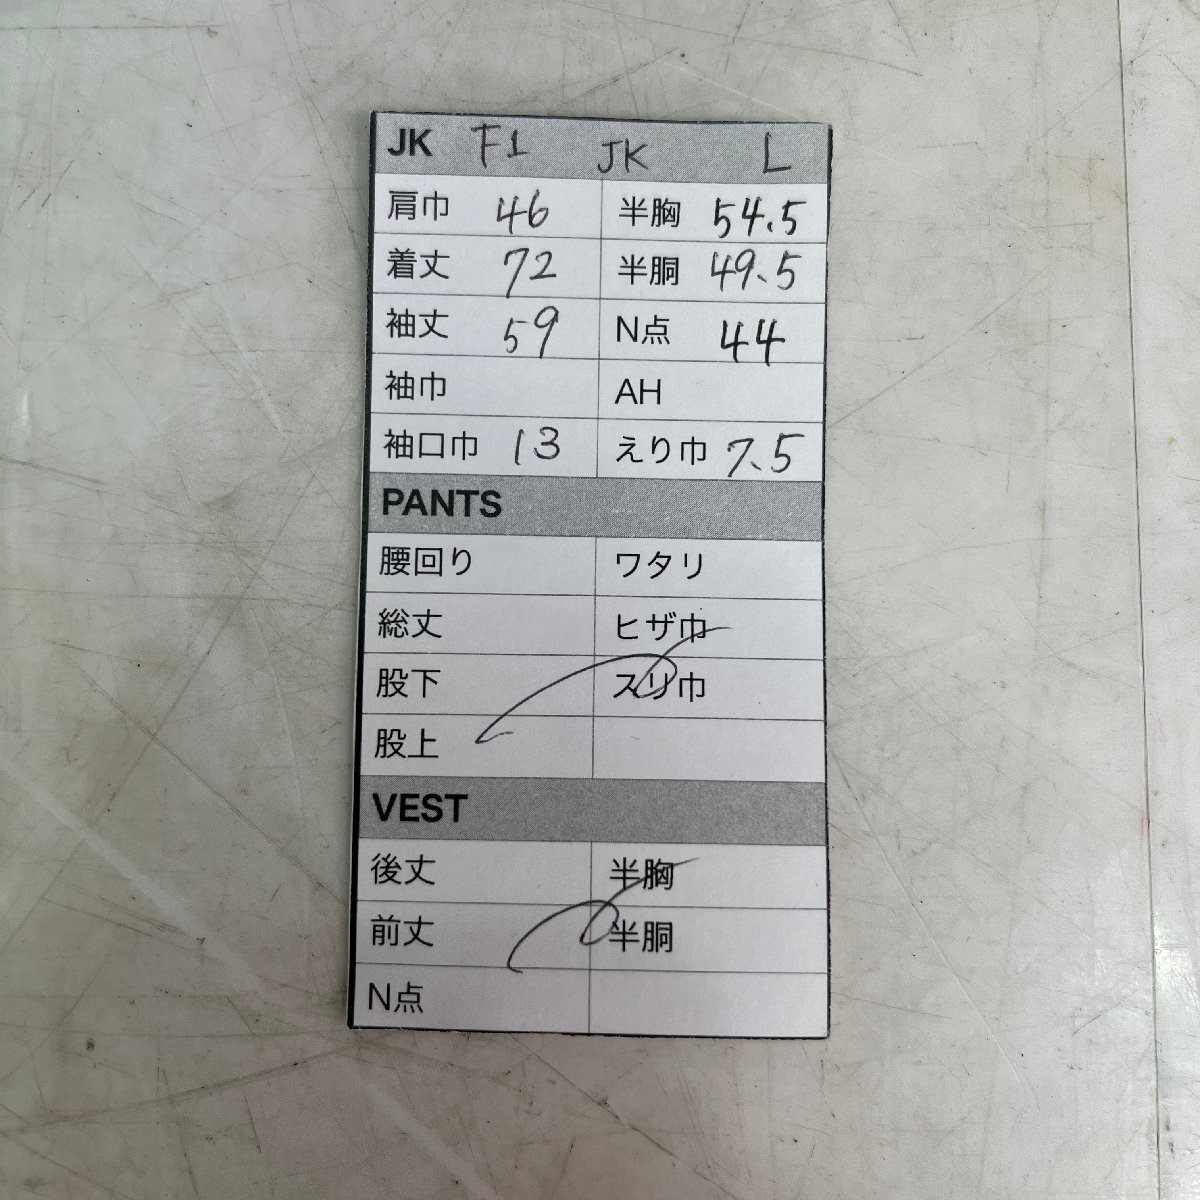 JK F1 JK L
肩巾 46 半胸 54.5
着丈 72 半胴 49.5
袖丈 59 N点 44
袖巾 AH
袖口巾 13 えり巾 7.5
PANTS
腰回り ワタリ
総丈 ヒザ巾
股下 スリ巾
股上
VEST
後丈 半胸
前丈 半胴
N点